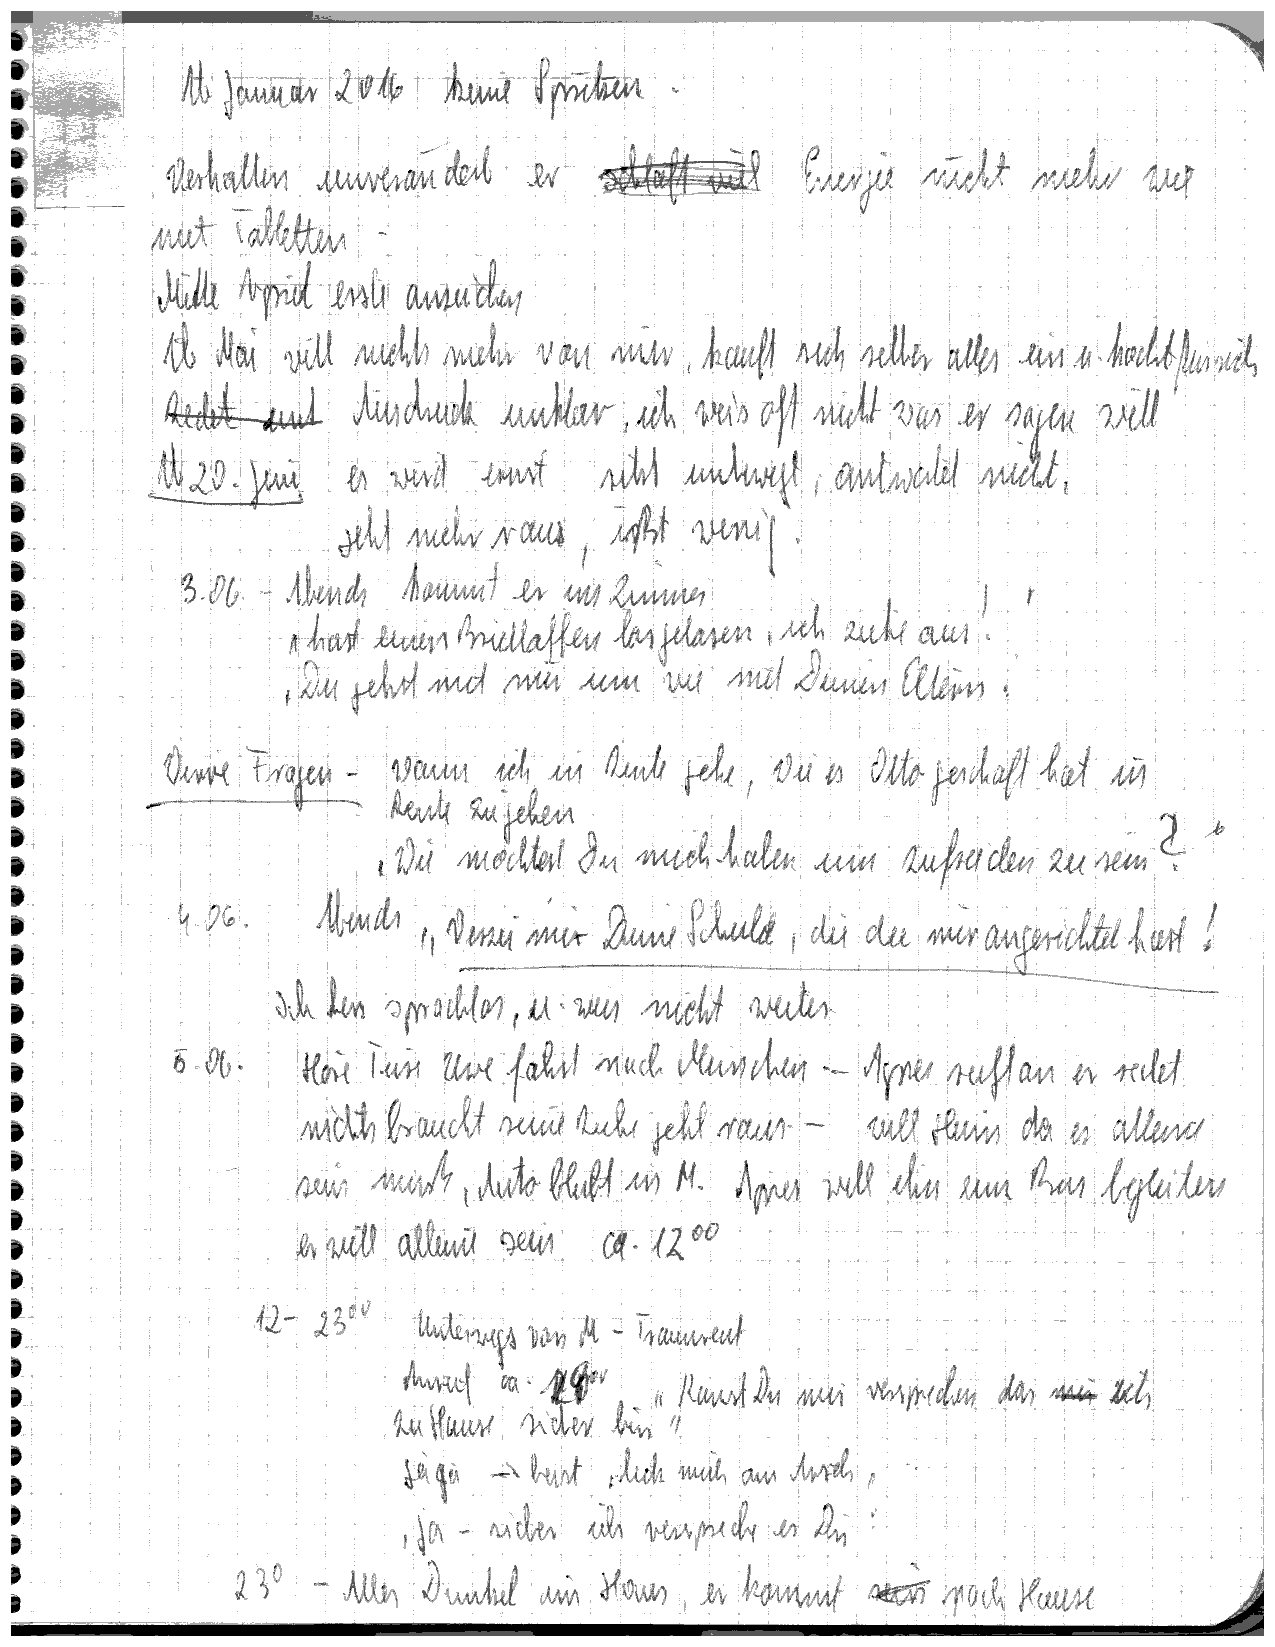 Ab Januar 2016 keine Spritzen.
Verhalten unverändert er schläft viel Energie nicht mehr wie
mit Tabletten -
Mitte April erste anzeichen
Ab Mai will nichts mehr von mir, kauft sich selber alles ein u. kocht für sich
Redet und Ausdruck unklar, ich weis oft nicht was er sagen will
Ab 20. Juni er wird ernst sitzt unbwegt, antwortet nicht.
geht mehr raus, ißt wenig.
3.06. - Abends kommt er ins Zimmer
"hast einen losgelasen, ich ziehe aus!"
"Du gehst mit mir um wie mit Deinen Eltern."
Wirre Fragen - Wann ich in Rente gehe, Wie es Otto geschaft hat in
Rente zu gehen
"Wie möchtest Du mich haben um zufrieden zu sein?"
4.06. Abends "Verzei mir Deine Schuld, die du mir angerichtet hast!
Ich bin sprachlos, u. weis nicht weiter
5.06. Höre Uwe fährt nach München - Agnes ruft an er redet
nichts braucht seine Ruhe geht raus - will Heim da er alleine
sein muß, Auto bleibt in M. Agnes will ihn zum Bus begleiten
er will alleine sein ca. 12⁰⁰
12 - 23⁰⁰ Unterwegs von M - Traunreut
Anruf ca. "Kanst Du mir versprechen das mir ich
zu Hause sicher bin"
jaja → heist "leck mich am Arsch"
"ja - sicher ich verspreche es Dir"
23⁰ - Alles Dunkel im Haus, er kommt nach Hause